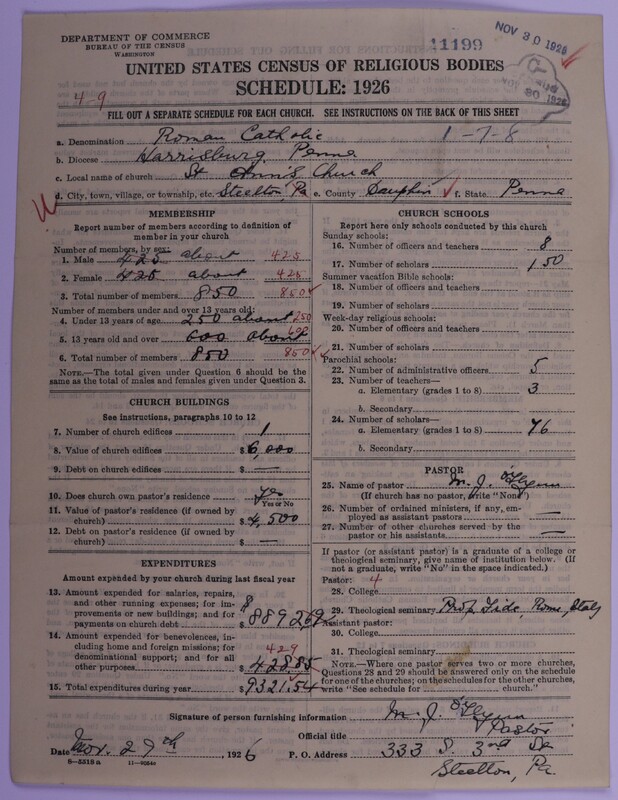 DEPARTMENT OF COMMERCE
BUREAU OF THE CENSUS
WASHINGTON
11199
NOV 30 1926
NOV 30 1926
UNITED STATES CENSUS OF RELIGIOUS BODIES
SCHEDULE: 1926
4-9
FILL OUT A SEPARATE SCHEDULE FOR EACH CHURCH. SEE INSTRUCTIONS ON THE BACK OF THIS SHEET
a. Denomination Roman Catholic 1-7-8
b. Diocese Harrisburg Penna
c. Local name of church St Ann's Church
d. City, town, village, or township, etc. Steelton, Pa e. County Dauphin f. State Penna
MEMBERSHIP
Report number of members according to definition of
member in your church
Number of members, by sex:
1. Male 425 about 425
2. Female 425 about 425
3. Total number of members 850 850
Number of members under and over 13 years old:
4. Under 13 years of age 250 about 250
5. 13 years old and over 600 about 600
6. Total number of members 850 850
NOTE.—The total given under Question 6 should be
the same as the total of males and females given under Question 3.
CHURCH BUILDINGS
See instructions, paragraphs 10 to 12
7. Number of church edifices 1
8. Value of church edifices $ 6,000
9. Debt on church edifices $ —
10. Does church own pastor's residence yes
Yes or No
11. Value of pastor's residence (if owned by
church) $ 4,500
12. Debt on pastor's residence (if owned by
church) $ —
EXPENDITURES
Amount expended by your church during last fiscal year
13. Amount expended for salaries, repairs,
and other running expenses; for im-
provements or new buildings; and for
payments on church debt $ 8892.69
14. Amount expended for benevolences,
including home and foreign missions; for
denominational support; and for all
other purposes 429 $ 428.85
15. Total expenditures during year $ 9321.54
CHURCH SCHOOLS
Report here only schools conducted by this church
Sunday schools:
16. Number of officers and teachers 8
17. Number of scholars 150
Summer vacation Bible schools:
18. Number of officers and teachers
19. Number of scholars
Week-day religious schools:
20. Number of officers and teachers
21. Number of scholars
Parochial schools:
22. Number of administrative officers 5
23. Number of teachers—
a. Elementary (grades 1 to 8) 3
b. Secondary
24. Number of scholars—
a. Elementary (grades 1 to 8) 76
b. Secondary
PASTOR
25. Name of pastor M. J. O'Flynn
(If church has no pastor, write "None")
26. Number of ordained ministers, if any, em-
ployed as assistant pastors —
27. Number of other churches served by the
pastor or his assistants —
If pastor (or assistant pastor) is a graduate of a college or
theological seminary, give name of institution below. (If
not a graduate, write "No" in the space indicated.)
Pastor: 4
28. College
29. Theological seminary Prop. Fide, Rome, Italy
Assistant pastor:
30. College
31. Theological seminary
NOTE.—Where one pastor serves two or more churches,
Questions 28 and 29 should be answered only on the schedule
for one of the churches; on the schedules for the other churches,
write "See schedule for church."
Signature of person furnishing information M. J. O'Flynn
Official title Pastor
Date Nov. 29th, 1926 P. O. Address 333 S. 3rd St
Steelton, Pa.
6—5319a 11—9054a